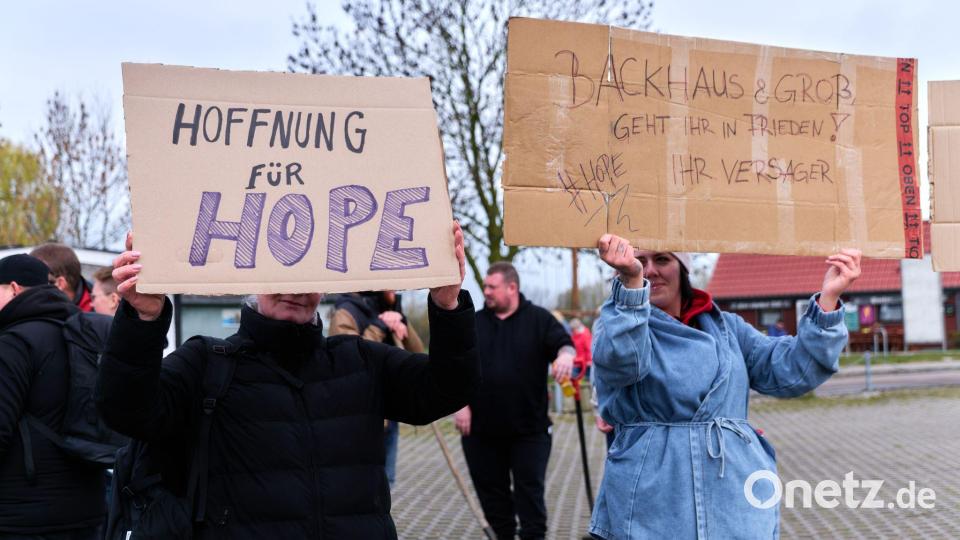 HOFFNUNG
FÜR
HOPE
BACKHAUS & GROß
GEHT IHR IN FRIEDEN!
#HOPE
IHR VERSAGER
TOP 11 OBEN 11 TO
Onetz.de